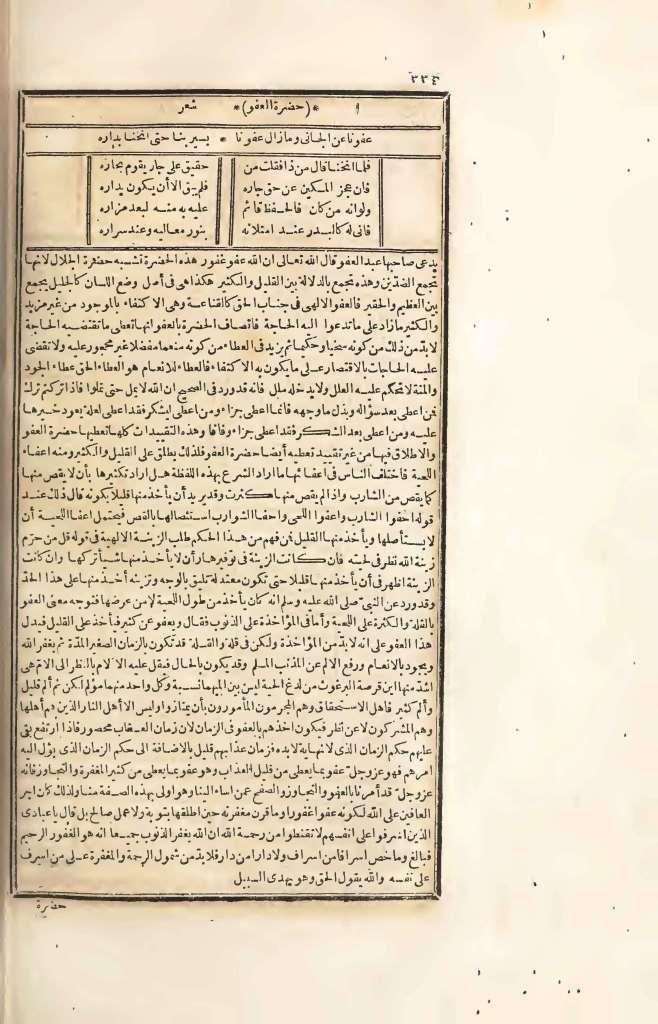 ٣٣٤
* (حضرة العفو) * شعر
عفونا عن الجانى وما زال عفونا * يسير بنا حتى انخنا بداره
فلما انخنا قال من ذا فقلت من حقيق على جار يقوم بجاره
فان عجز المسكين عن حق جاره فلم يبق الا أن يكون بداره
ولو انه من كان فالحفظ قائم عليه به منه لبعد مزاره
فانى له كالبدر عند امتلائه بنور معاليه وعند سراره
يدعى صاحبها عبد العفو قال الله تعالى ان الله عفو غفور هذه الحضرة تشبه حضرة الجلال لانها
تجمع الضدين وهذه تجمع بالدلالة بين القليل والكثير هكذا هى فى أصل وضع اللسان كالجليل يجمع
بين العظيم والحقير فالعفو الالهى فى جناب الحق كالقناعة وهى الاكتفاء بالموجود من غير مزيد
والكثير ما زاد على ما تدعوا اليه الحاجة فاتصاف الحضرة بالعفو انها تعطى ما تقتضيه الحاجة
لابد من ذلك من كونه سخيا وحكيما ثم يزيد فى العطاء من كونه منعما مفضلا غير محجور عليه ولا تقضى
عليه الحاجات بالاقتصار على ما يكون به الاكتفاء فالعطاء للانعام هو العطاء الحق عطاء الجود
والمنة لا تحكم عليه العلل ولا يدخله ملل فانه قد ورد فى الصحيح ان الله لا يمل حتى تملوا فاذا تركتم ترك
فمن اعطى بعد سؤاله وبذل ماء وجهه فانما اعطى جزاء ومن اعطى ليشكر فقد اعطى لعلة يعود خيرها
عليه ومن اعطى بعد الشكر فقد اعطى جزاء وفاقا وهذه التقييدات كلها تعطيها حضرة العفو
والاطلاق فيها من غير تقييد تعطيه أيضا حضرة العفو فلذلك يطلق على القليل والكثير ومنه اعفاء
اللحية فاختلف الناس فى اعفائها ما اراد الشرع بهذه اللفظة هل اراد تكثيرها بأن لا يقص منها
كما يقص من الشارب واذا لم يقص منها كثرت وقد يريد أن يأخذ منها قليلا لكونه قال ذلك عند
قوله احفوا الشارب واعفوا اللحى واحفاء الشوارب استئصالها بالقص فيحتمل اعفاء اللحية أن
لا يستأصلها ويأخذ منها القليل فمن فهم من هذا الحكم طلب الزينة الالهية فى قوله قل من حرم
زينة الله نظر فى لحيته فان كانت الزينة فى توفيرها وأن لا يأخذ منها شيأ تركها وان كانت
الزينة اظهر فى أن يأخذ منها قليلا حتى تكون معتدلة تليق بالوجه وتزينه أخذ منها على هذا الحد
وقد ورد عن النبى صلى الله عليه وسلم انه كان يأخذ من طول اللحية لا من عرضها فتوجه معنى العفو
بالقلة والكثرة على اللحية وأما فى المؤاخذة على الذنوب فقال ويعفو عن كثير فيأخذ على القليل فيدل
هذا العفو على انه لابد من المؤاخذة ولكن فى قلة والقلة قد تكون بالزمان الصغير المدة ثم يغفر الله
ويجود بالانعام ورفع الالم عن المذنب المسلم وقد يكون بالحال فيقل عليه الالام بالنظر الى الام هى
اشد منها اين قرصة البرغوث من لدغ الحية ليس بين الميهما نسبة وكل واحد منهما مؤلم لكن ثم ألم قليل
وألم كثير فاهل الاستحقاق وهم المجرمون المأمورون بأن يمتازوا وليس الا أهل النار الذين هم أهلها
وهم المشركون لا عن نظر فيكون اخذهم بالعفو فى الزمان لان زمان العقاب محصور فاذا ارتفع بقى
عليهم حكم الزمان الذى لا نهاية لابده فزمان عذابهم قليل بالاضافة الى حكم الزمان الذى يؤل اليه
امرهم فهو عز وجل عفو بما يعطى من قليل العذاب وهو عفو بما يعطى من كثير المغفرة والتجاوز فانه
عز وجل قد أمرنا بالعفو والتجاوز والصفح عمن اساء الينا وهو اولى بهذه الصفة منا ولذلك كان اجر
العافين على الله لكونه عفوا غفورا وما قرن مغفرته حين اطلقها بتوبة ولا عمل صالح بل قال يا عبادى
الذين اسرفوا على انفسهم لا تقنطوا من رحمة الله ان الله يغفر الذنوب جميعا انه هو الغفور الرحيم
فبالغ وما خص اسرافا من اسراف ولا دارا من دار فلابد من شمول الرحمة والمغفرة على من اسرف
على نفسه والله يقول الحق وهو يهدى السبيل
حضرة